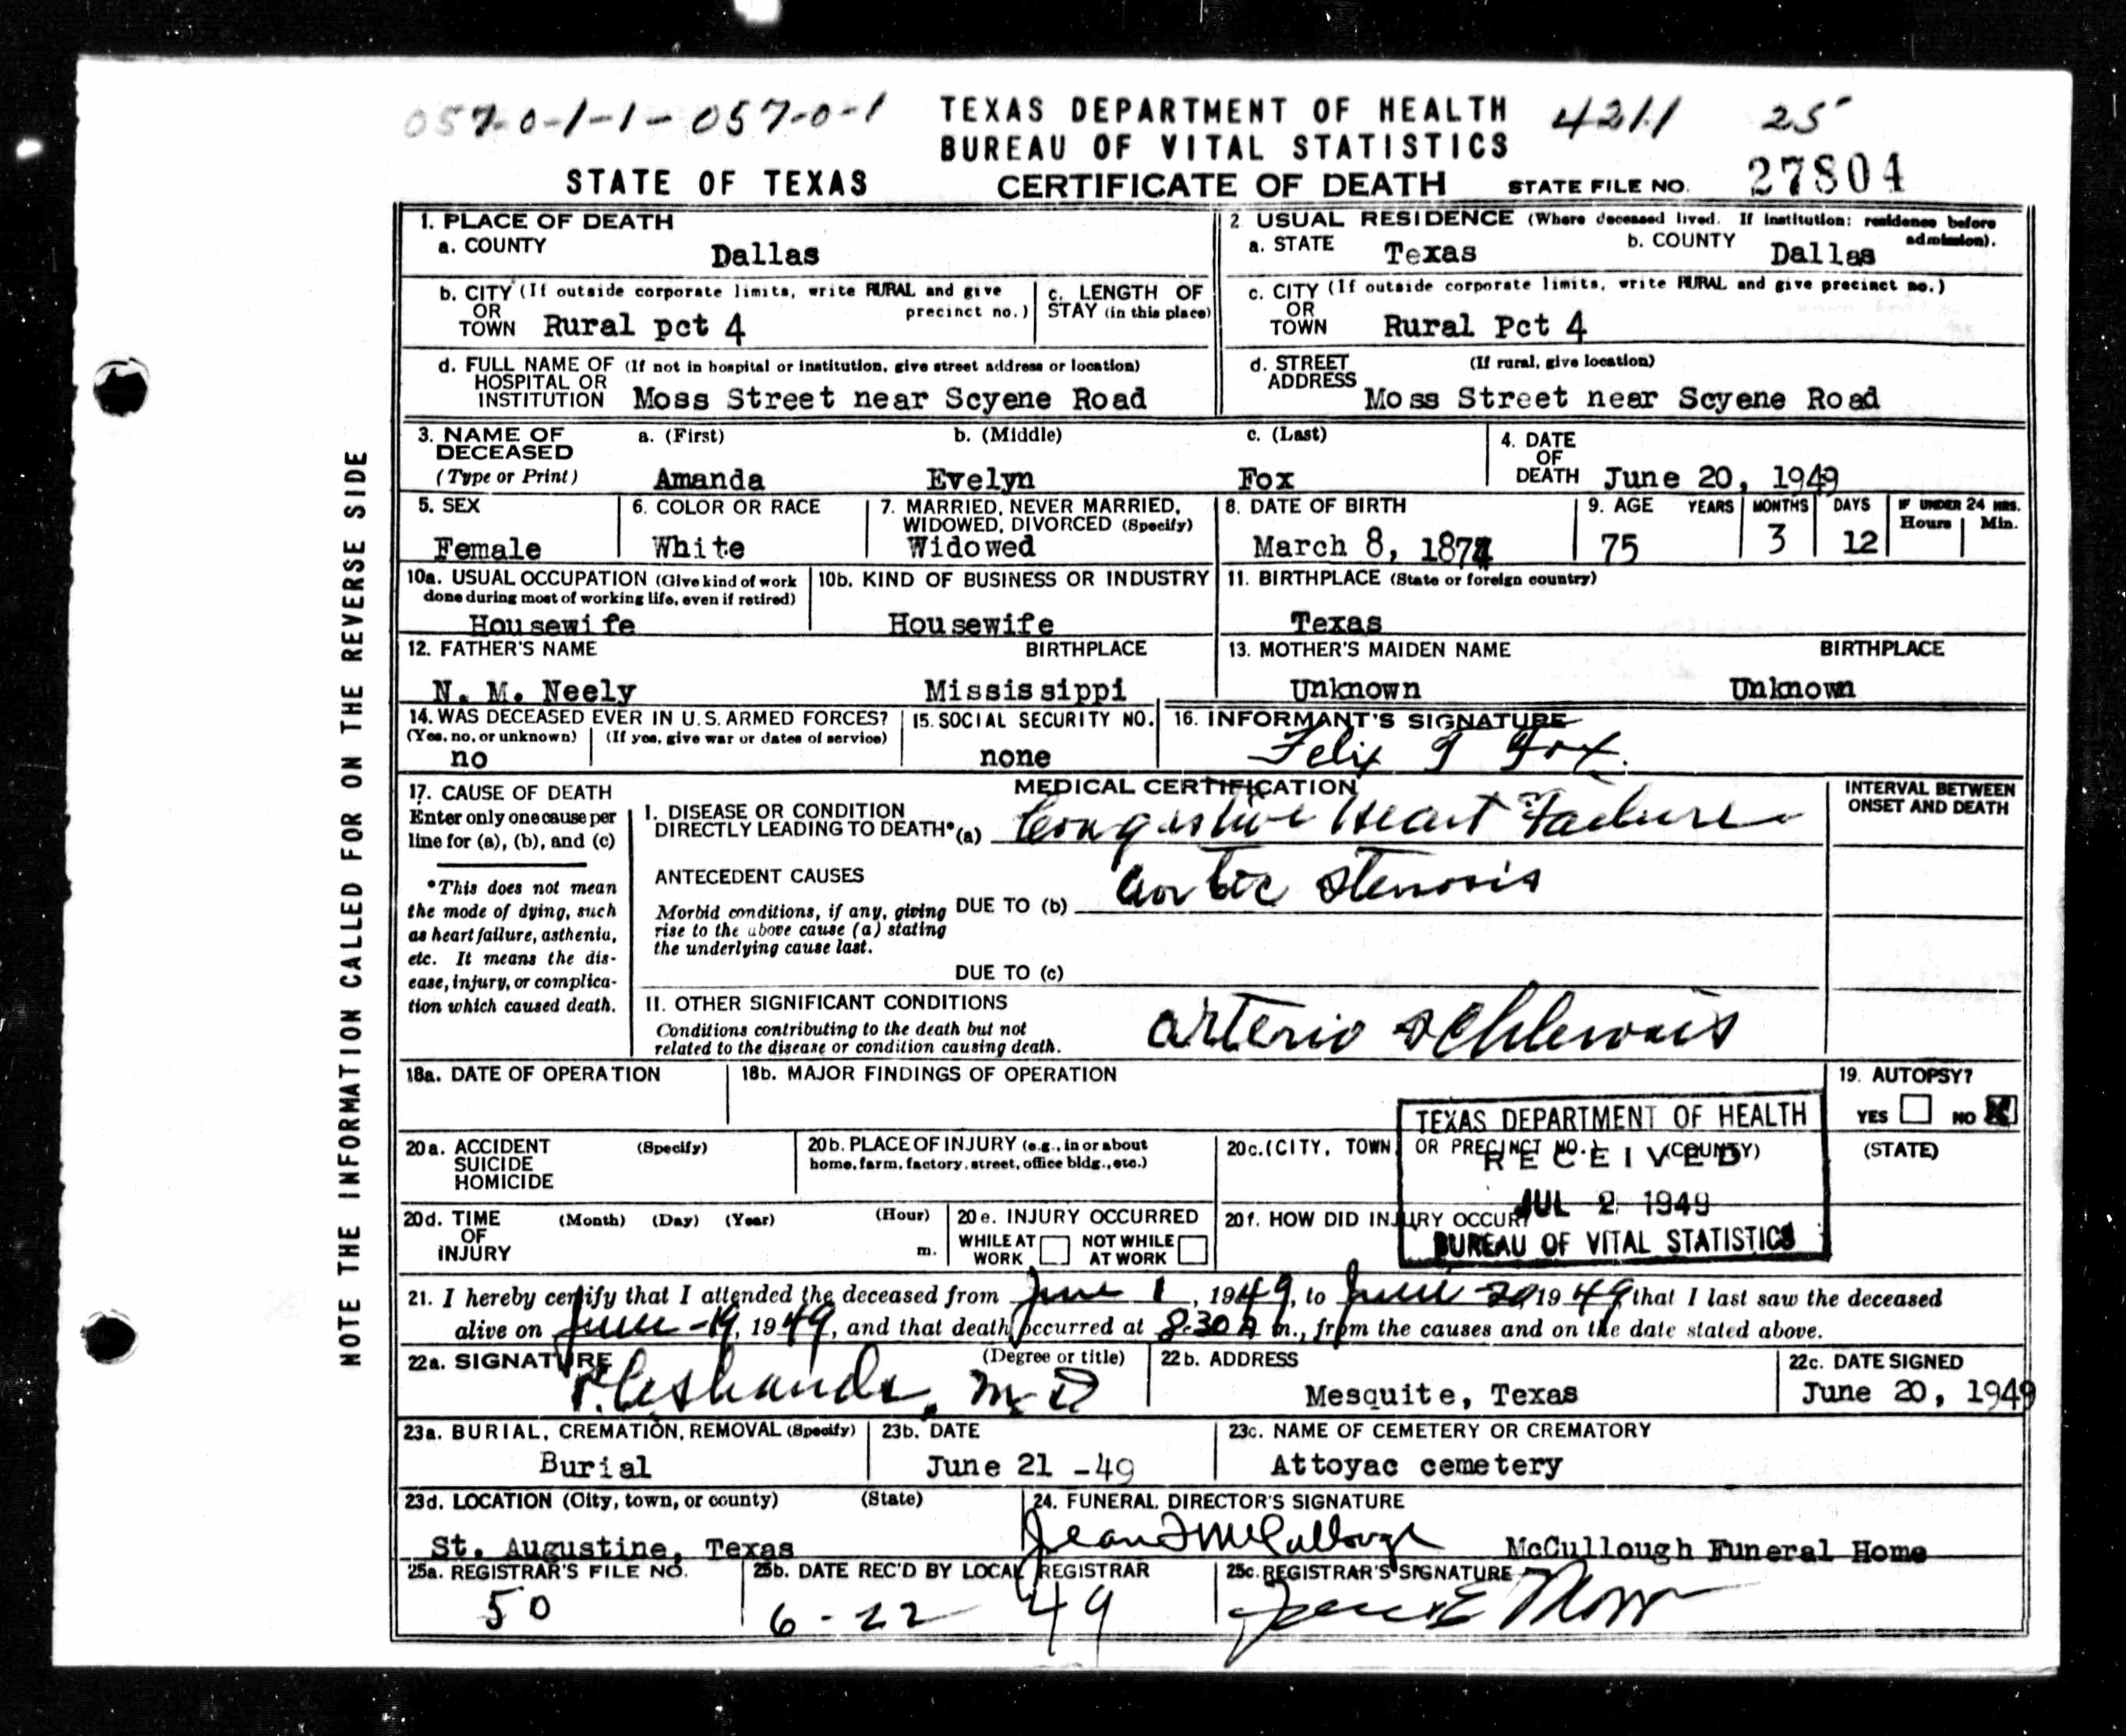 057-0-1-1-057-0-1
TEXAS DEPARTMENT OF HEALTH
4211 25
BUREAU OF VITAL STATISTICS
STATE OF TEXAS CERTIFICATE OF DEATH STATE FILE NO. 27804
NOTE THE INFORMATION CALLED FOR ON THE REVERSE SIDE
1. PLACE OF DEATH
a. COUNTY Dallas
2. USUAL RESIDENCE (Where deceased lived. If institution: residence before admission).
a. STATE Texas b. COUNTY Dallas
b. CITY (If outside corporate limits, write RURAL and give precinct no.)
OR
TOWN Rural pct 4
c. LENGTH OF
STAY (in this place)
c. CITY (If outside corporate limits, write RURAL and give precinct no.)
OR
TOWN Rural Pct 4
d. FULL NAME OF (If not in hospital or institution, give street address or location)
HOSPITAL OR
INSTITUTION Moss Street near Scyene Road
d. STREET (If rural, give location)
ADDRESS Moss Street near Scyene Road
3. NAME OF DECEASED
(Type or Print)
a. (First) b. (Middle) c. (Last)
Amanda Evelyn Fox
4. DATE
OF
DEATH June 20, 1949
5. SEX
Female
6. COLOR OR RACE
White
7. MARRIED, NEVER MARRIED,
WIDOWED, DIVORCED (Specify)
Widowed
8. DATE OF BIRTH
March 8, 1874
9. AGE YEARS MONTHS DAYS IF UNDER 24 HRS.
Hours Min.
75 3 12
10a. USUAL OCCUPATION (Give kind of work
done during most of working life, even if retired)
Housewife
10b. KIND OF BUSINESS OR INDUSTRY
Housewife
11. BIRTHPLACE (State or foreign country)
Texas
12. FATHER'S NAME BIRTHPLACE
N. M. Neely Mississippi
13. MOTHER'S MAIDEN NAME BIRTHPLACE
Unknown Unknown
14. WAS DECEASED EVER IN U.S. ARMED FORCES?
(Yes, no, or unknown) (If yes, give war or dates of service)
no
15. SOCIAL SECURITY NO.
none
16. INFORMANT'S SIGNATURE
Felix J Fox
MEDICAL CERTIFICATION
INTERVAL BETWEEN
ONSET AND DEATH
17. CAUSE OF DEATH
Enter only one cause per
line for (a), (b), and (c)
*This does not mean
the mode of dying, such
as heart failure, asthenia,
etc. It means the dis-
ease, injury, or complica-
tion which caused death.
I. DISEASE OR CONDITION
DIRECTLY LEADING TO DEATH* (a) Congestive Heart Failure
ANTECEDENT CAUSES
Morbid conditions, if any, giving
rise to the above cause (a) stating
the underlying cause last.
DUE TO (b) Aortic Stenosis
DUE TO (c)
II. OTHER SIGNIFICANT CONDITIONS
Conditions contributing to the death but not
related to the disease or condition causing death.
arterio
18a. DATE OF OPERATION
18b. MAJOR FINDINGS OF OPERATION
19. AUTOPSY?
YES NO X
20a. ACCIDENT (Specify)
SUICIDE
HOMICIDE
20b. PLACE OF INJURY (e.g., in or about
home, farm, factory, street, office bldg., etc.)
20c. (CITY, TOWN, OR PRECINCT NO.) (COUNTY) (STATE)
TEXAS DEPARTMENT OF HEALTH
RECEIVED
JUL 2 1949
BUREAU OF VITAL STATISTICS
20d. TIME (Month) (Day) (Year) (Hour)
OF
INJURY m.
20e. INJURY OCCURRED
WHILE AT NOT WHILE
WORK AT WORK
20f. HOW DID INJURY OCCUR?
21. I hereby certify that I attended the deceased from June 1, 1949, to June 20 1949, that I last saw the deceased
alive on June-19, 1949, and that death occurred at 8:30 A m., from the causes and on the date stated above.
22a. SIGNATURE (Degree or title)
M D
22b. ADDRESS
Mesquite, Texas
22c. DATE SIGNED
June 20, 1949
23a. BURIAL, CREMATION, REMOVAL (Specify)
Burial
23b. DATE
June 21 -49
23c. NAME OF CEMETERY OR CREMATORY
Attoyac cemetery
23d. LOCATION (City, town, or county) (State)
St. Augustine, Texas
24. FUNERAL DIRECTOR'S SIGNATURE
McCullough McCullough Funeral Home
25a. REGISTRAR'S FILE NO.
50
25b. DATE REC'D BY LOCAL REGISTRAR
6-22 49
25c. REGISTRAR'S SIGNATURE